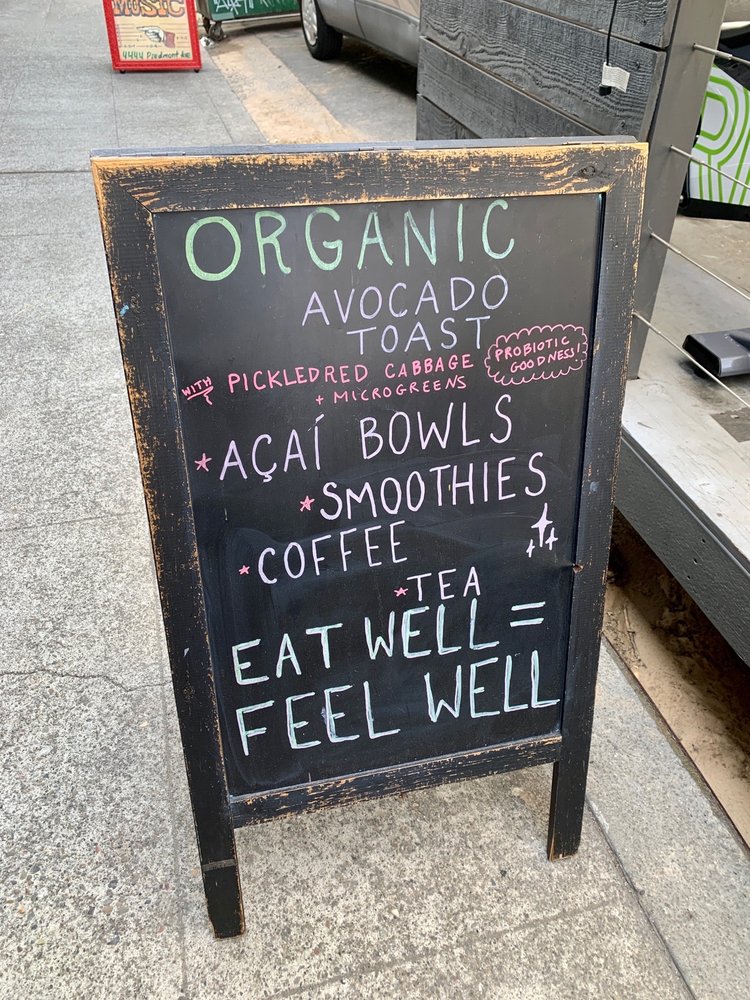 MUSIC
4444 Piedmont Ave
ORGANIC
AVOCADO
TOAST
WITH PICKLEDRED CABBAGE
+ MICROGREENS
PROBIOTIC
GOODNESS!
*AÇAÍ BOWLS
*SMOOTHIES
*COFFEE
*TEA
EAT WELL =
FEEL WELL